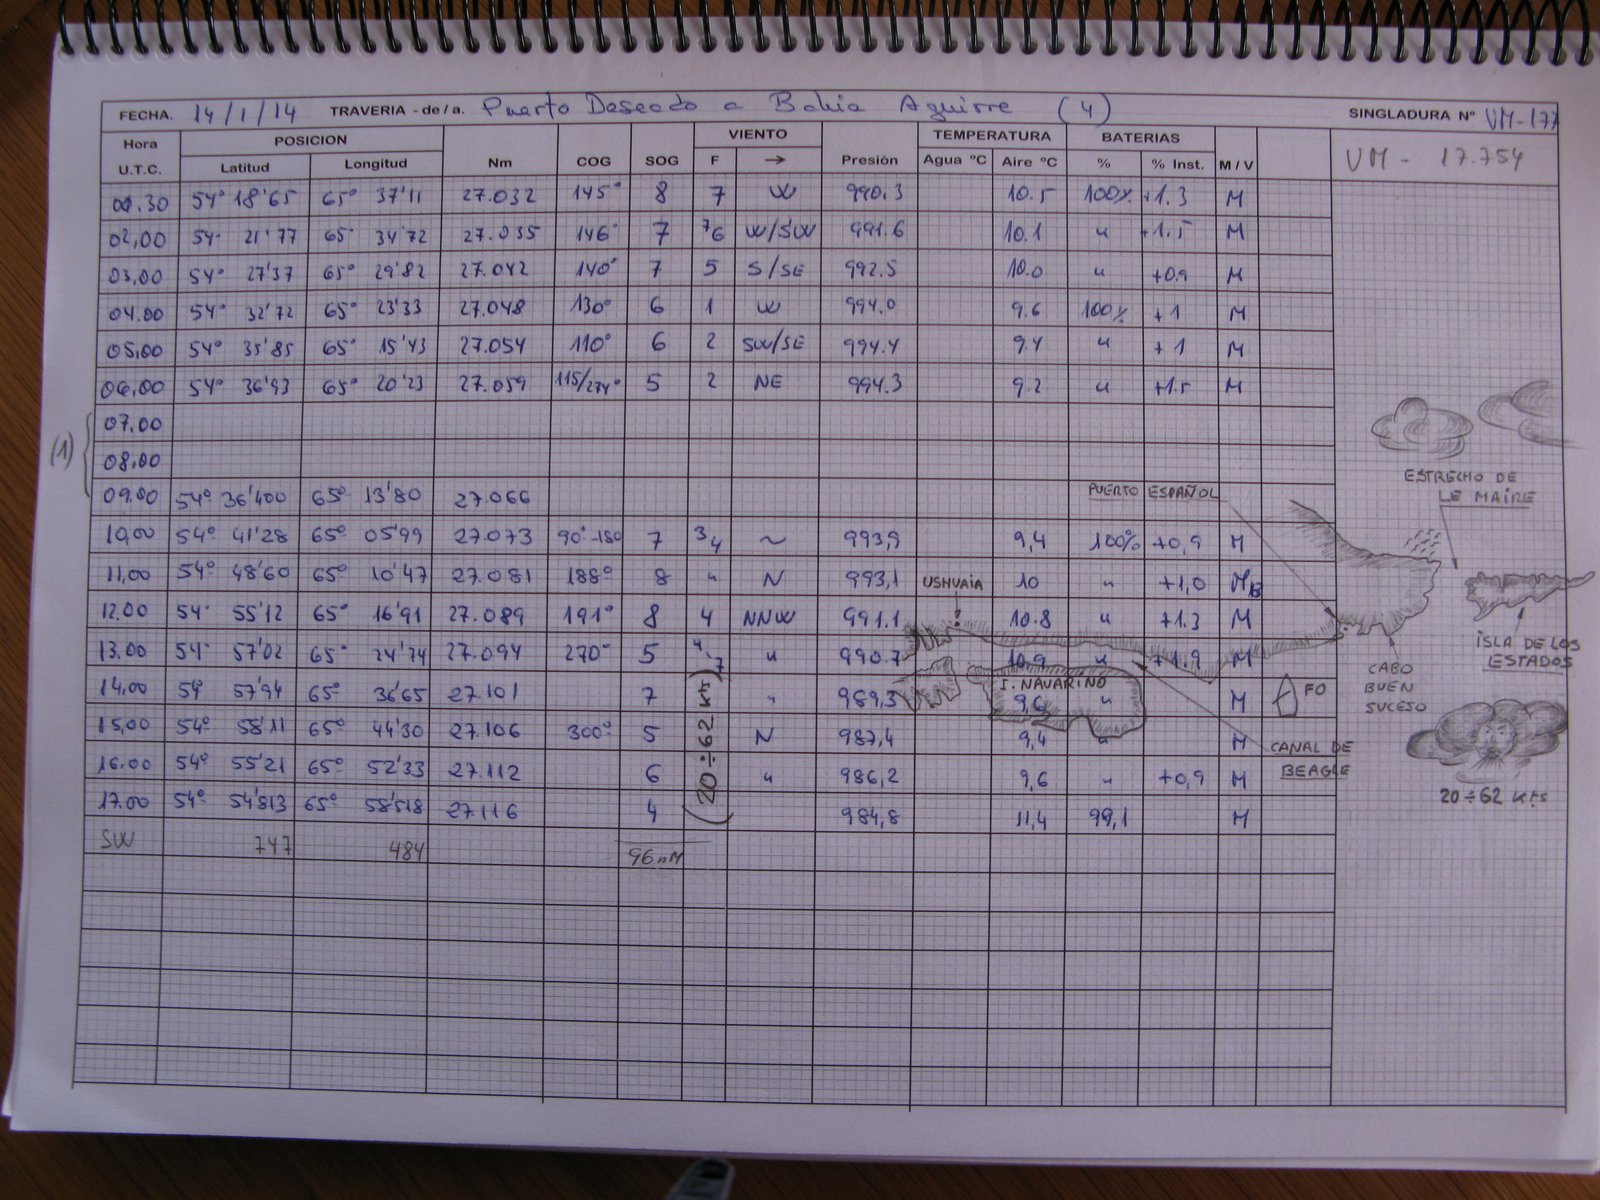 FECHA. 14/1/14 TRAVERIA - de / a. Puerto Deseado a Bahia Aguirre (4) SINGLADURA Nº VM-177
Hora U.T.C. POSICION Latitud Longitud Nm COG SOG VIENTO F → Presión TEMPERATURA Agua ºC Aire ºC BATERIAS % % Inst. M / V VM - 17.754
00.30 54° 18'65 65° 37'11 27.032 145° 8 7 W 990.3 10.5 100% +1.3 M
02,00 54° 21'77 65° 34'72 27.035 146° 7 76 W/SW 991.6 10.1 " +1.5 M
03,00 54° 27'37 65° 29'82 27.042 140° 7 5 S/SE 992.5 10.0 " +0.9 M
04.00 54° 32'72 65° 23'33 27.048 130° 6 1 W 994.0 9.6 100% +1 M
05,00 54° 35'85 65° 15'43 27.054 110° 6 2 SW/SE 994.4 9.4 " +1 M
06.00 54° 36'93 65° 20'23 27.059 115/274° 5 2 NE 994.3 9.2 " +1.5 M
(1) 07.00
08.00
09.00 54° 36'400 65° 13'80 27.066
PUERTO ESPAÑOL
ESTRECHO DE
LE MAIRE
10,00 54° 41'28 65° 05'99 27.073 90°-180 7 3 4 ~ 993,9 9,4 100% +0,9 M
11,00 54° 48'60 65° 10'47 27.081 188° 8 " N 993,1 USHUAIA 10 " +1,0 M
12.00 54° 55'12 65° 16'91 27.089 191° 8 4 NNW 991.1 10.8 " +1.3 M
13.00 54° 57'02 65° 24'74 27.094 270° 5 4-7 " 990.7 10.9 " +1.9 M
ISLA DE LOS
ESTADOS
CABO
BUEN
SUCESO
I. NAVARINO
14.00 54° 57'94 65° 36'65 27.101 7 " 989,3 9,6 " M FO
15,00 54° 58'11 65° 44'30 27.106 300° 5 N 987,4 9,4 " M
CANAL DE
BEAGLE
16.00 54° 55'21 65° 52'33 27.112 6 " 986,2 9,6 " +0,9 M
17.00 54° 54'813 65° 58'518 27.116 4 984,8 11,4 99,1 M
(20÷62 kts)
20÷62 kts
SW 747 484 96 nM